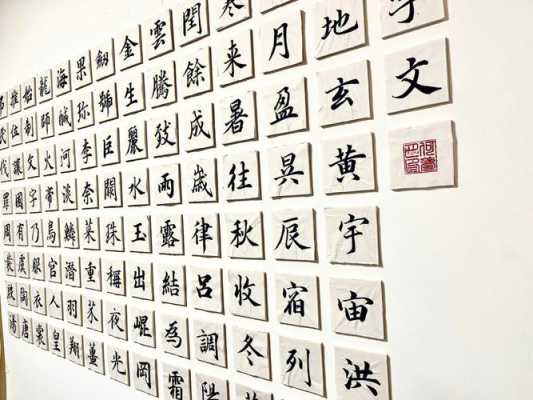 字文
地玄黄宇宙洪
月盈昃辰宿列
寒来暑往秋収冬
閏餘成歳律呂調陽
雲騰致雨露結為霜
金生麗水玉出崐岡
劒號巨闕珠稱夜光
果珎李奈菜重芥薑
海鹹河淡鱗潜羽翔
龍師火帝鳥官人皇
始制文字乃服衣裳
推位讓國有虞陶唐
民伐罪周發殷湯